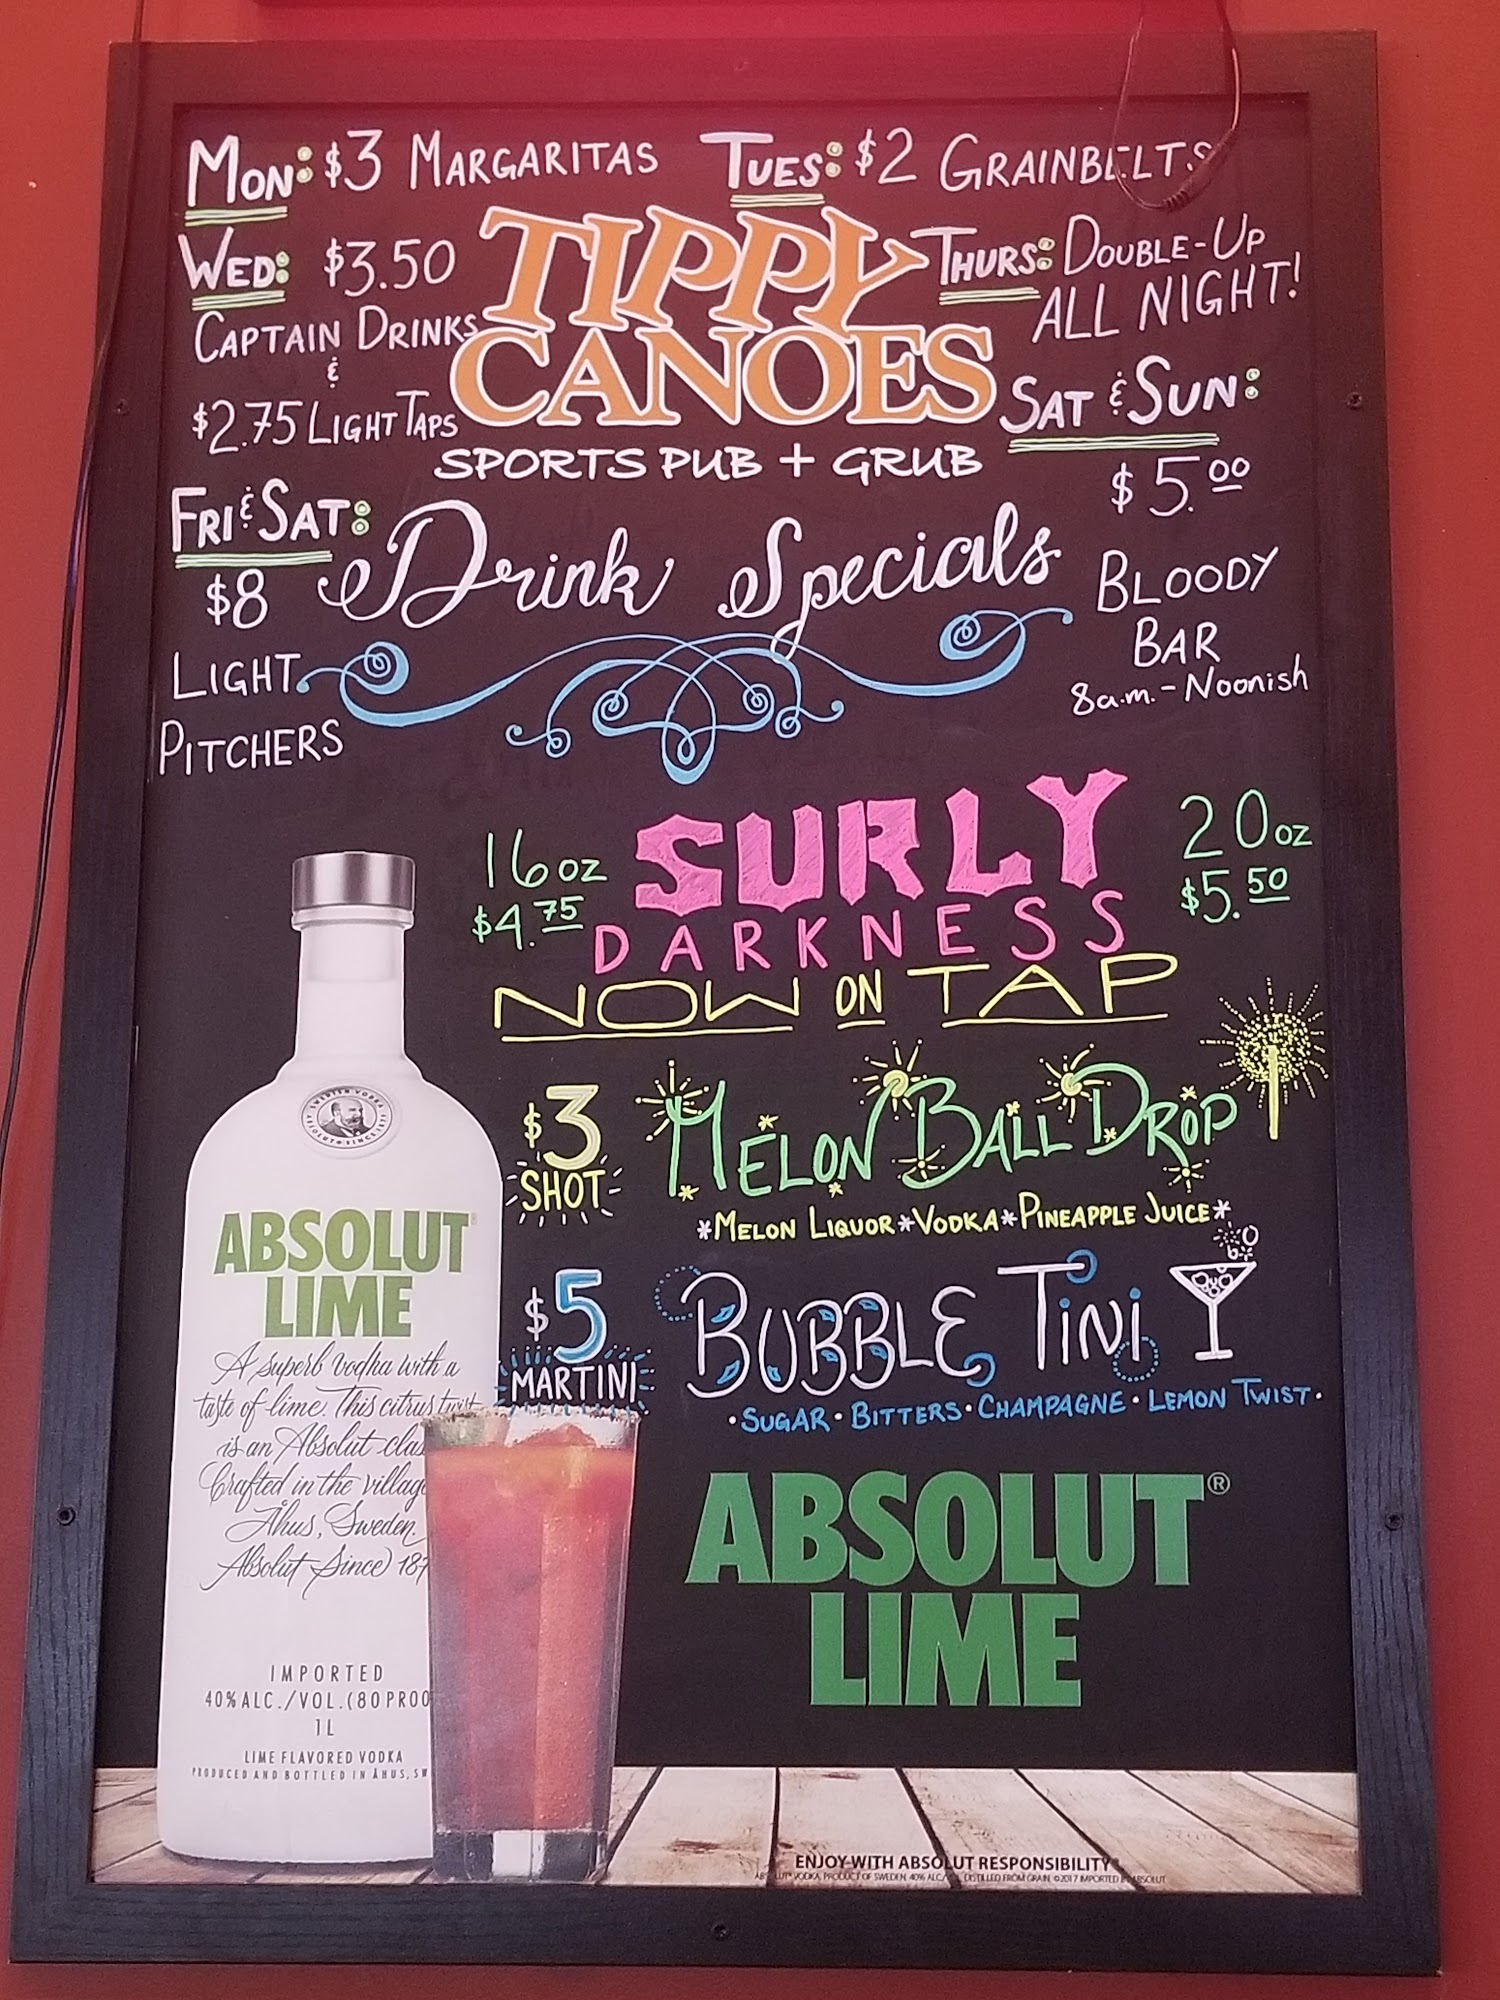 MON: $3 MARGARITAS
TUES: $2 GRAINBELTS
WED: $3.50
CAPTAIN DRINKS
&
$2.75 LIGHT TAPS
TIPPY
CANOES
SPORTS PUB + GRUB
THURS: DOUBLE-UP
ALL NIGHT!
FRI & SAT:
$8
LIGHT
PITCHERS
Drink Specials
SAT & SUN:
$5.00
BLOODY
BAR
8a.m. - NOONISH
16oz
$4.75
SURLY
DARKNESS
NOW ON TAP
20oz
$5.50
$3
SHOT
MELON BALL DROP
*MELON LIQUOR*VODKA*PINEAPPLE JUICE*
$5
MARTINI
BUBBLE TINI
·SUGAR·BITTERS·CHAMPAGNE·LEMON TWIST·
ABSOLUT®
LIME
SWEDISH VODKA
ABSOLUT SINCE
ABSOLUT
LIME
A superb vodka with a
taste of lime. This citrus twist
is an Absolut
Crafted in the
Åhus, Sweden.
Absolut Since
IMPORTED
40% ALC./VOL. (80
1 L
LIME FLAVORED VODKA
PRODUCED AND BOTTLED IN ÅHUS,
ENJOY WITH ABSOLUT RESPONSIBILITY®
ABSOLUT® VODKA. PRODUCT OF SWEDEN. 40% ALC./VOL. DISTILLED FROM GRAIN. ©2017 IMPORTED BY ABSOLUT